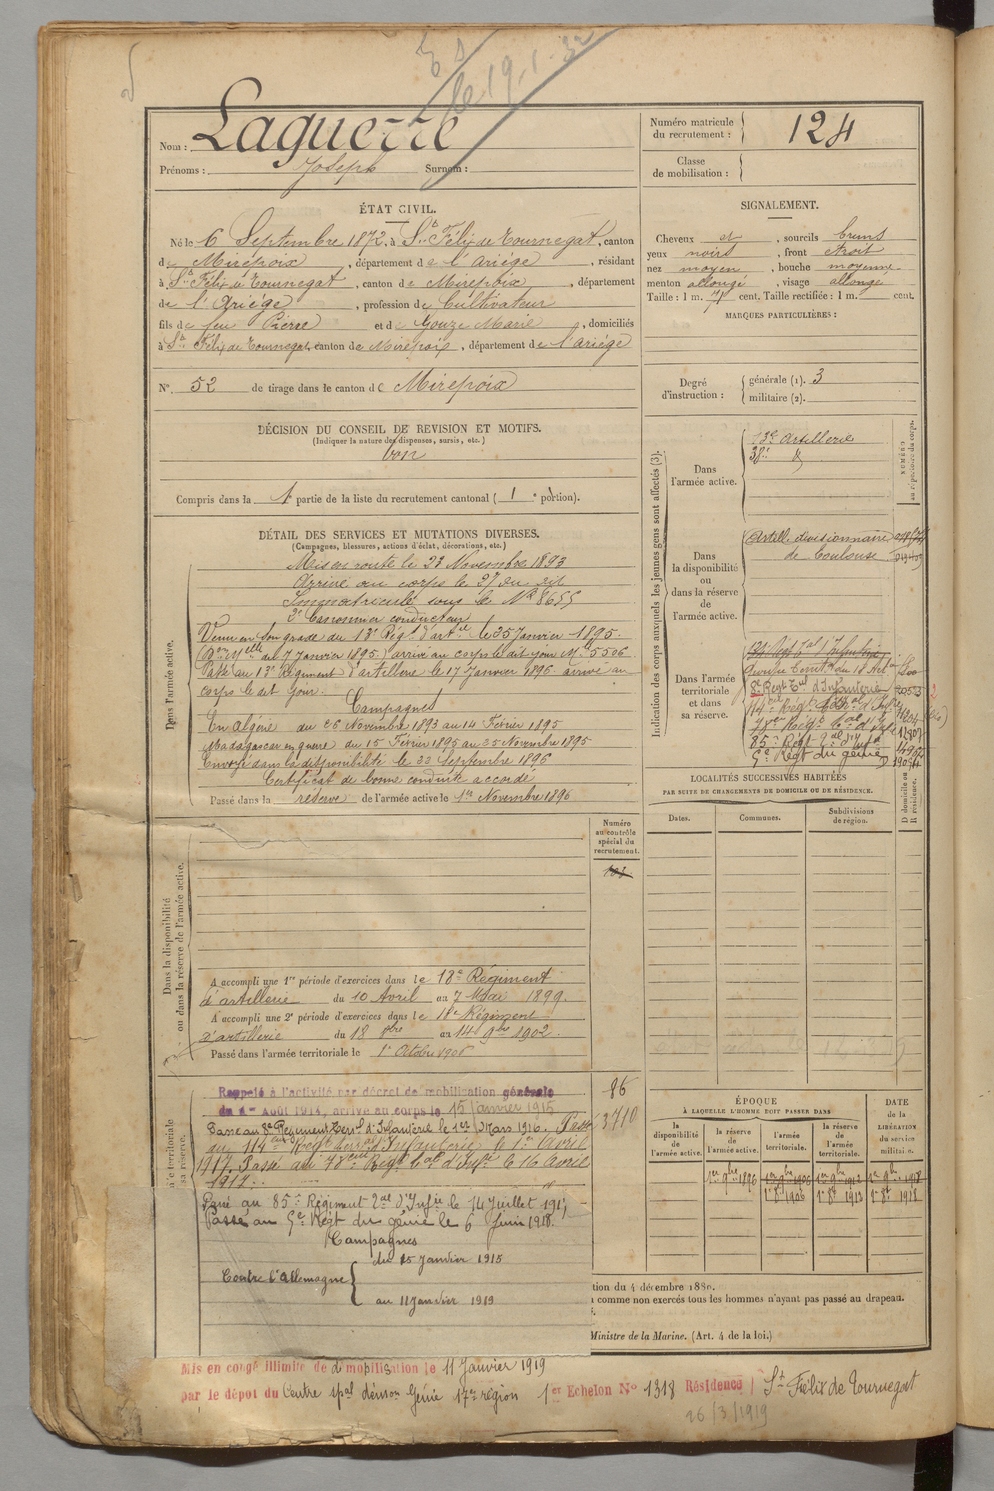 le 19-1-32
Nom : Laguerre
Prénoms : Joseph Surnom :
Numéro matricule
du recrutement : 124
Classe
de mobilisation :
ÉTAT CIVIL.
Né le 6 Septembre 1872, à St Félix de Tournegat, canton
de Mirepoix, département de l'Ariége, résidant
à St Félix de Tournegat, canton de Mirepoix, département
de l'Ariége, profession de Cultivateur
fils de feu Pierre et de Gouze Marie, domiciliés
à St Félix de Tournegat, canton de Mirepoix, département de l'Ariége
N° 52 de tirage dans le canton de Mirepoix
SIGNALEMENT.
Cheveux et, sourcils bruns
yeux noirs, front étroit
nez moyen, bouche moyenne
menton allongé, visage allongé
Taille : 1 m. 71 cent. Taille rectifiée : 1 m. cent.
MARQUES PARTICULIÈRES :
Degré
d'instruction :
générale (1). 3
militaire (2).
DÉCISION DU CONSEIL DE REVISION ET MOTIFS.
(Indiquer la nature des dispenses, sursis, etc.)
bon
Compris dans la 1e partie de la liste du recrutement cantonal ( 1e portion).
DÉTAIL DES SERVICES ET MUTATIONS DIVERSES.
(Campagnes, blessures, actions d'éclat, décorations, etc.)
Dans l'armée active.
Mis en route le 23 Novembre 1893
Arrivé au corps le 27 du dit
Immatriculé sous le N° 8655
2e Canonnier conducteur
Venu en son grade du 13e Régt d'artie le 25 Janvier 1895.
du 7 Janvier 1895) arrivé au corps le dit jour Mle 5506
Passé au 13e Régiment d'artillerie le 17 Janvier 1896 arrivé au
corps le dit jour.
Campagnes
En Algérie du 26 Novembre 1893 au 14 Février 1895
Madagascar en guerre du 15 Février 1895 au 25 Novembre 1895
Envoyé dans la disponibilité le 22 Septembre 1896
Certificat de bonne conduite accordé
Passé dans la réserve de l'armée active le 1er Novembre 1896
Indication des corps auxquels les jeunes gens sont affectés (3).
NUMÉRO
au répertoire du corps.
Dans
l'armée active.
13e Artillerie
38e d°
Dans
la disponibilité
ou
dans la réserve
de
l'armée active.
Artill. divisionnaire
de Toulouse
Dans l'armée
territoriale
et dans
sa réserve.
8e Regt Tal d'Infanterie
114e Régt
85e Régt Tal d'Infie
5e Régt du génie
LOCALITÉS SUCCESSIVES HABITÉES
PAR SUITE DE CHANGEMENTS DE DOMICILE OU DE RÉSIDENCE.
Dates.
Communes.
Subdivisions
de région.
D domicile ou
R résidence.
Numéro
au contrôle
spécial du
recrutement.
Dans la disponibilité
ou dans la réserve de l'armée active.
A accompli une 1re période d'exercices dans le 18e Régiment
d'artillerie du 10 Avril au 7 Mai 1899.
A accompli une 2e période d'exercices dans le 18e Régiment
d'artillerie du 18 8bre au 14 9bre 1902.
Passé dans l'armée territoriale le 1er Octobre 1906
86
3710
Rappelé à l'activité par décret de mobilisation générale
du 1er Août 1914, arrivé au corps le 15 janvier 1915
Passé au 8e Régiment Terral d'Infanterie le 1er Mars 1916. Passé
au 114eme Régt terral d'Infanterie le 1er Avril
1917. Passé au Régt Tal d'Infie le 16 Avril
1917.
Passé au 85e Régiment d'Infie le 14 Juillet 1917
Passé au 5e Régt du génie le 6 Juin 1918.
Campagnes
Contre l'Allemagne
du 15 janvier 1915
au 11 janvier 1919
ÉPOQUE
À LAQUELLE L'HOMME DOIT PASSER DANS
la
disponibilité
de
l'armée active.
la réserve
de
l'armée active.
l'armée
territoriale.
la réserve
de
l'armée
territoriale.
DATE
de la
LIBÉRATION
du service
militaire.
1er 9bre 1896
1er 9bre 1906
1er 8bre 1906
1er 9bre 1912
1er 8bre 1913
1er 9bre 1918
1er 8bre 1918
tion du 4 décembre 1889.
comme non exercés tous les hommes n'ayant pas passé au drapeau.
Ministre de la Marine. (Art. 4 de la loi.)
Mis en congé illimité de démobilisation le 11 Janvier 1919
par le dépôt du Centre spal démon Génie 17e région 1er Echelon N° 1318 Résidence St Félix de Tournegat
26/3/1919